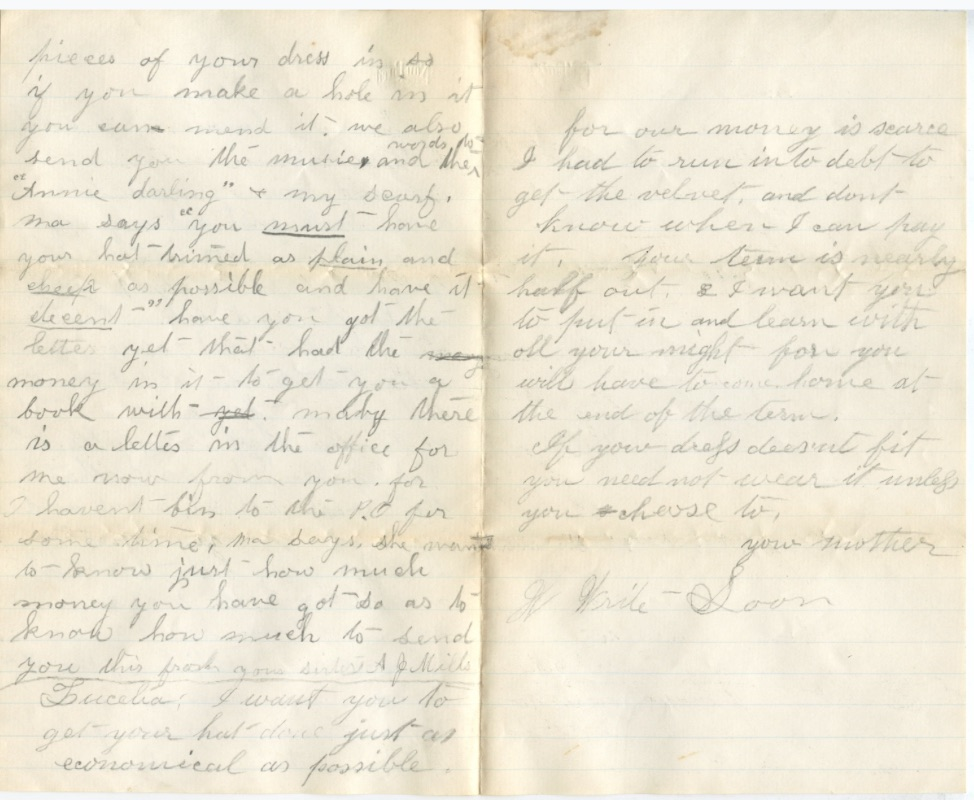 pieces of your dress in so
if you make a hole in it
you can mend it. we also
send you the music, and the words to
"Annie darling" & my scarf.
ma says "you must have
your hat trimed as plain and
cheap as possible and have it
decent" have you got the
letter yet that had the
money in it to get you a
book with yet. maby there
is a letter in the office for
me now from you. for
I havent bin to the P.O for
some time, ma says, she wants
to know just how much
money you have got so as to
know how much to send
you this from your sister A J Mills
Lucelia; I want you to
get your hat done just as
economical as possible.
for our money is scarce
I had to run in to debt to
get the velvet, and dont
know when I can pay
it. Your term is nearly
half out. & I want you
to put in and learn with
all your might for you
will have to come home at
the end of the term.
If your dress doesnt fit
you need not wear it unless
you choose to,
your mother
W Write Soon